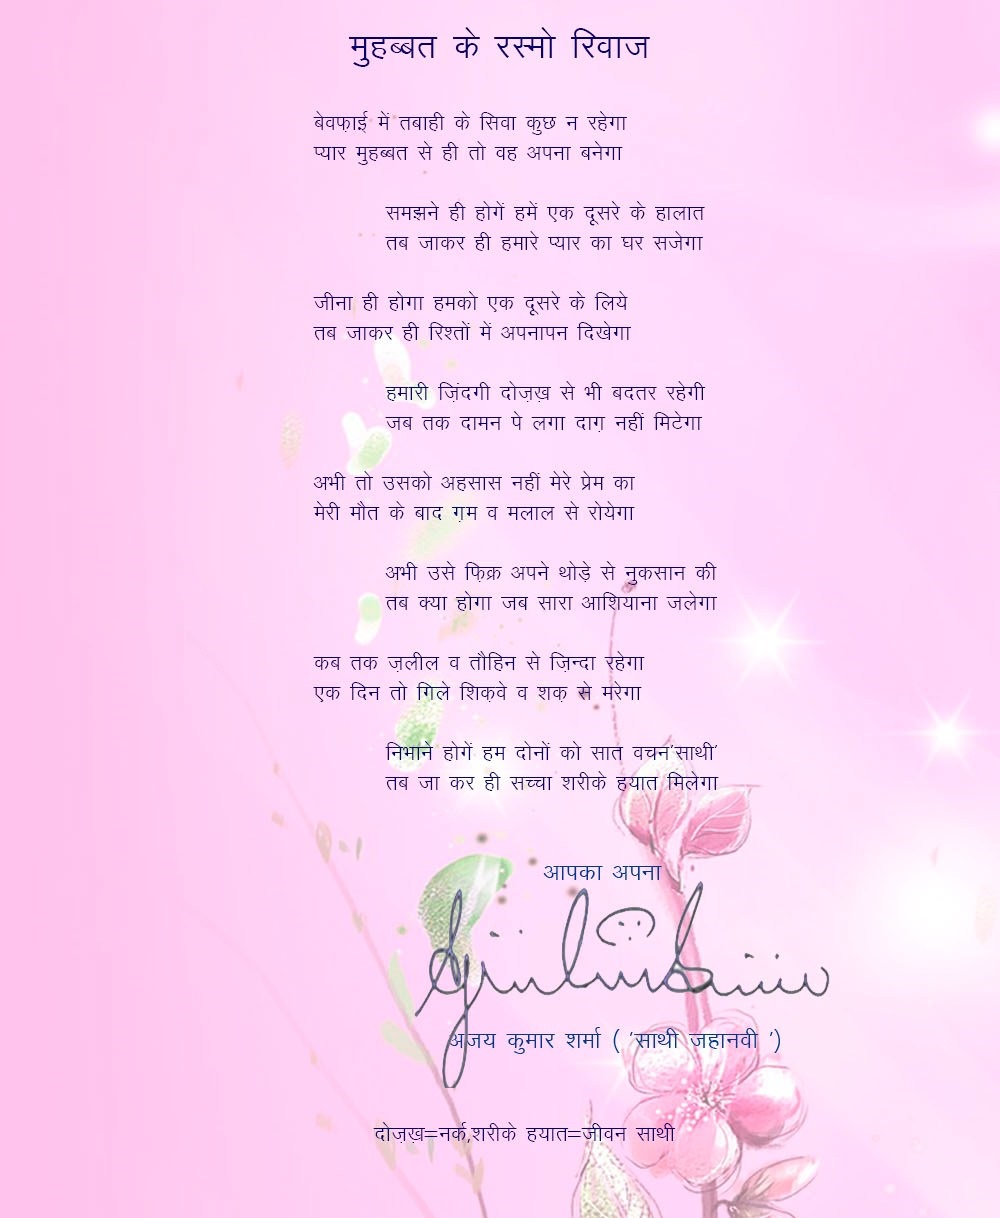 मुहब्बत के रस्मो रिवाज
बेवफ़ाई में तबाही के सिवा कुछ न रहेगा
प्यार मुहब्बत से ही तो वह अपना बनेगा
समझने ही होगें हमें एक दूसरे के हालात
तब जाकर ही हमारे प्यार का घर सजेगा
जीना ही होगा हमको एक दूसरे के लिये
तब जाकर ही रिश्तों में अपनापन दिखेगा
हमारी ज़िंदगी दोज़ख़ से भी बदतर रहेगी
जब तक दामन पे लगा दाग़ नहीं मिटेगा
अभी तो उसको अहसास नहीं मेरे प्रेम का
मेरी मौत के बाद ग़म व मलाल से रोयेगा
अभी उसे फ़िक्र अपने थोड़े से नुकसान की
तब क्या होगा जब सारा आशियाना जलेगा
कब तक ज़लील व तौहिन से ज़िन्दा रहेगा
एक दिन तो गिले शिक़वे व शक़ से मरेगा
निभाने होगें हम दोनों को सात वचन'साथी'
तब जा कर ही सच्चा शरीके हयात मिलेगा
आपका अपना
अजय कुमार शर्मा ( 'साथी जहानवी ')
दोज़ख़=नर्क,शरीके हयात=जीवन साथी